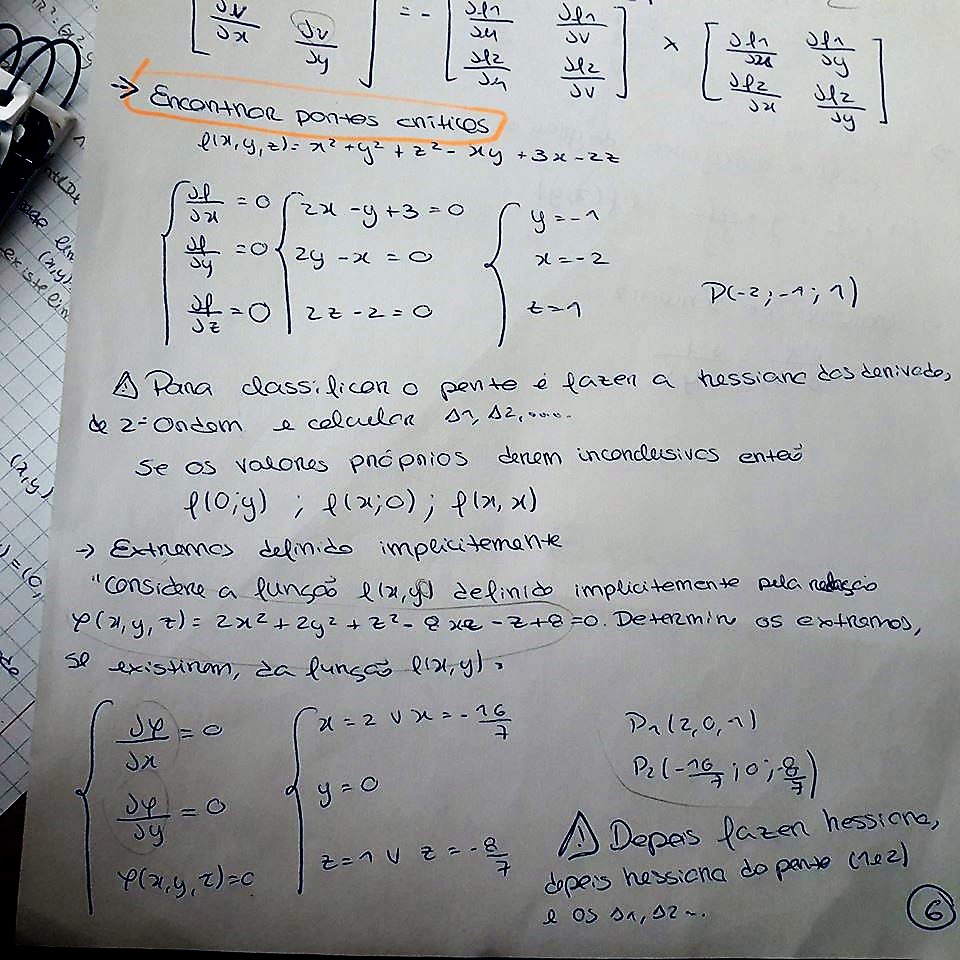 [∂v/∂x ∂v/∂y] = - [∂f1/∂u ∂f1/∂v ; ∂f2/∂u ∂f2/∂v] × [∂f1/∂x ∂f1/∂y ; ∂f2/∂x ∂f2/∂y]
→ Encontrar pontos críticos
f(x,y,z) = x² + y² + z² - xy + 3x - 2z
∂f/∂x = 0 2x - y + 3 = 0 y = -1
∂f/∂y = 0 2y - x = 0 x = -2
∂f/∂z = 0 2z - 2 = 0 z = 1 P(-2; -1; 1)
⚠ Para classificar o ponto é fazer a hessiana das derivada,
de 2ª Ordem e calcular Δ1, Δ2, ....
Se os valores próprios derem inconclusivos então
f(0;y) ; f(x;0) ; f(x,x)
→ Extremos definido implicitemente
"Considere a função f(x,y) definido implicitemente pela relação
φ(x,y,z) = 2x² + 2y² + z² - 8xz - z + 8 = 0. Determin os extremos,
se existirem, da função f(x,y).
∂φ/∂x = 0 x = 2 ∨ x = -16/7 P1(2,0,1)
∂φ/∂y = 0 y = 0 P2(-16/7; 0; -8/7)
φ(x,y,z) = 0 z = 1 ∨ z = -8/7
⚠ Depois fazer hessiana,
depois hessiana do ponto (1 e 2)
e os Δ1, Δ2 ...
6